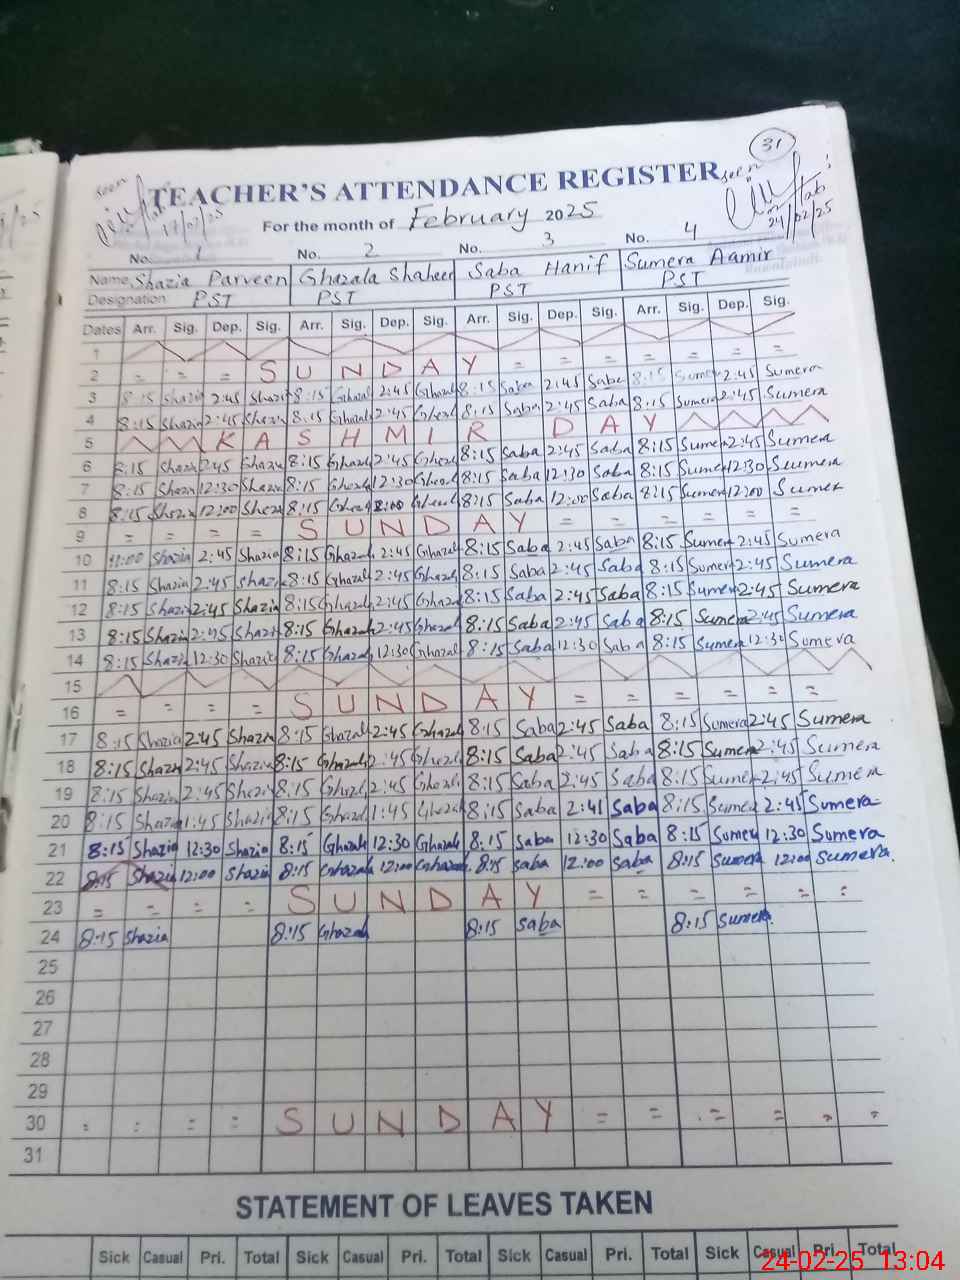 31
seen
seen
TEACHER'S ATTENDANCE REGISTER
17/02/25
24/02/25
For the month of February 2025
No. 1 No. 2 No. 3 No. 4
Name Shazia Parveen Ghazala Shaheen Saba Hanif Sumera Aamir
Designation PST PST PST PST
Dates Arr. Sig. Dep. Sig. Arr. Sig. Dep. Sig. Arr. Sig. Dep. Sig. Arr. Sig. Dep. Sig.
1
2 = = = SUNDAY = = = = = = =
3 8:15 Shazia 2:45 Shazia 8:15 Ghazal 2:45 Ghazal 8:15 Saba 2:45 Saba 8:15 Sumera 2:45 Sumera
4 8:15 Shazia 2:45 Shazia 8:15 Ghazal 2:45 Ghazal 8:15 Saba 2:45 Saba 8:15 Sumera 2:45 Sumera
5 KASHMIR DAY
6 8:15 Shazia 2:45 Shazia 8:15 Ghazal 2:45 Ghazal 8:15 Saba 2:45 Saba 8:15 Sumer 2:45 Sumera
7 8:15 Shazia 12:30 Shazia 8:15 Ghazal 12:30 Ghazal 8:15 Saba 12:30 Saba 8:15 Sumer 12:30 Sumera
8 8:15 Shazia 12:00 Shazia 8:15 Ghazal Ghazal 8:15 Saba 12:00 Saba 8:15 Sumer 12:00 Sumer
9 = = = = SUNDAY = = = = = =
10 Shazia 2:45 Shazia 8:15 Ghazal 2:45 Ghazal 8:15 Saba 2:45 Saba 8:15 Sumer 2:45 Sumera
11 8:15 Shazia 2:45 Shazia 8:15 Ghazal 2:45 Ghazal 8:15 Saba 2:45 Saba 8:15 Sumer 2:45 Sumera
12 8:15 Shazia 2:45 Shazia 8:15 Ghazal 2:45 Ghazal 8:15 Saba 2:45 Saba 8:15 Sumer 2:45 Sumera
13 8:15 Shazia 2:45 Shazia 8:15 Ghazal 2:45 Ghazal 8:15 Saba 2:45 Saba 8:15 Sumera 2:45 Sumera
14 8:15 Shazia 12:30 Shazia 8:15 Ghazal 12:30 Ghazal 8:15 Saba 12:30 Saba 8:15 Sumera 12:30 Sumera
15
16 = = = = SUNDAY = = = = = =
17 8:15 Shazia 2:45 Shazia 8:15 Ghazal 2:45 Ghazal 8:15 Saba 2:45 Saba 8:15 Sumera 2:45 Sumera
18 8:15 Shazia 2:45 Shazia 8:15 Ghazal 2:45 Ghazal 8:15 Saba 2:45 Saba 8:15 Sumera 2:45 Sumera
19 8:15 Shazia 2:45 Shazia 8:15 Ghazal 2:45 Ghazal 8:15 Saba 2:45 Saba 8:15 Sumer 2:45 Sumera
20 8:15 Shazia 1:45 Shazia 8:15 Ghazal 1:45 Ghazal 8:15 Saba 2:41 Saba 8:15 Sumer 2:41 Sumera
21 8:15 Shazia 12:30 Shazia 8:15 Ghazal 12:30 Ghazal 8:15 Saba 12:30 Saba 8:15 Sumer 12:30 Sumera
22 8:15 Shazia 12:00 Shazia 8:15 Ghazala 12:00 Ghazal 8:15 Saba 12:00 Saba 8:15 Sumera 12:00 Sumera.
23 = = = = SUNDAY = = = = = =
24 8:15 Shazia 8:15 Ghazal 8:15 Saba 8:15 Sumera
25
26
27
28
29
30 = = = = SUNDAY = = = = = =
31
STATEMENT OF LEAVES TAKEN
Sick Casual Pri. Total Sick Casual Pri. Total Sick Casual Pri. Total Sick Casual Pri. Total
24-02-25 13:04